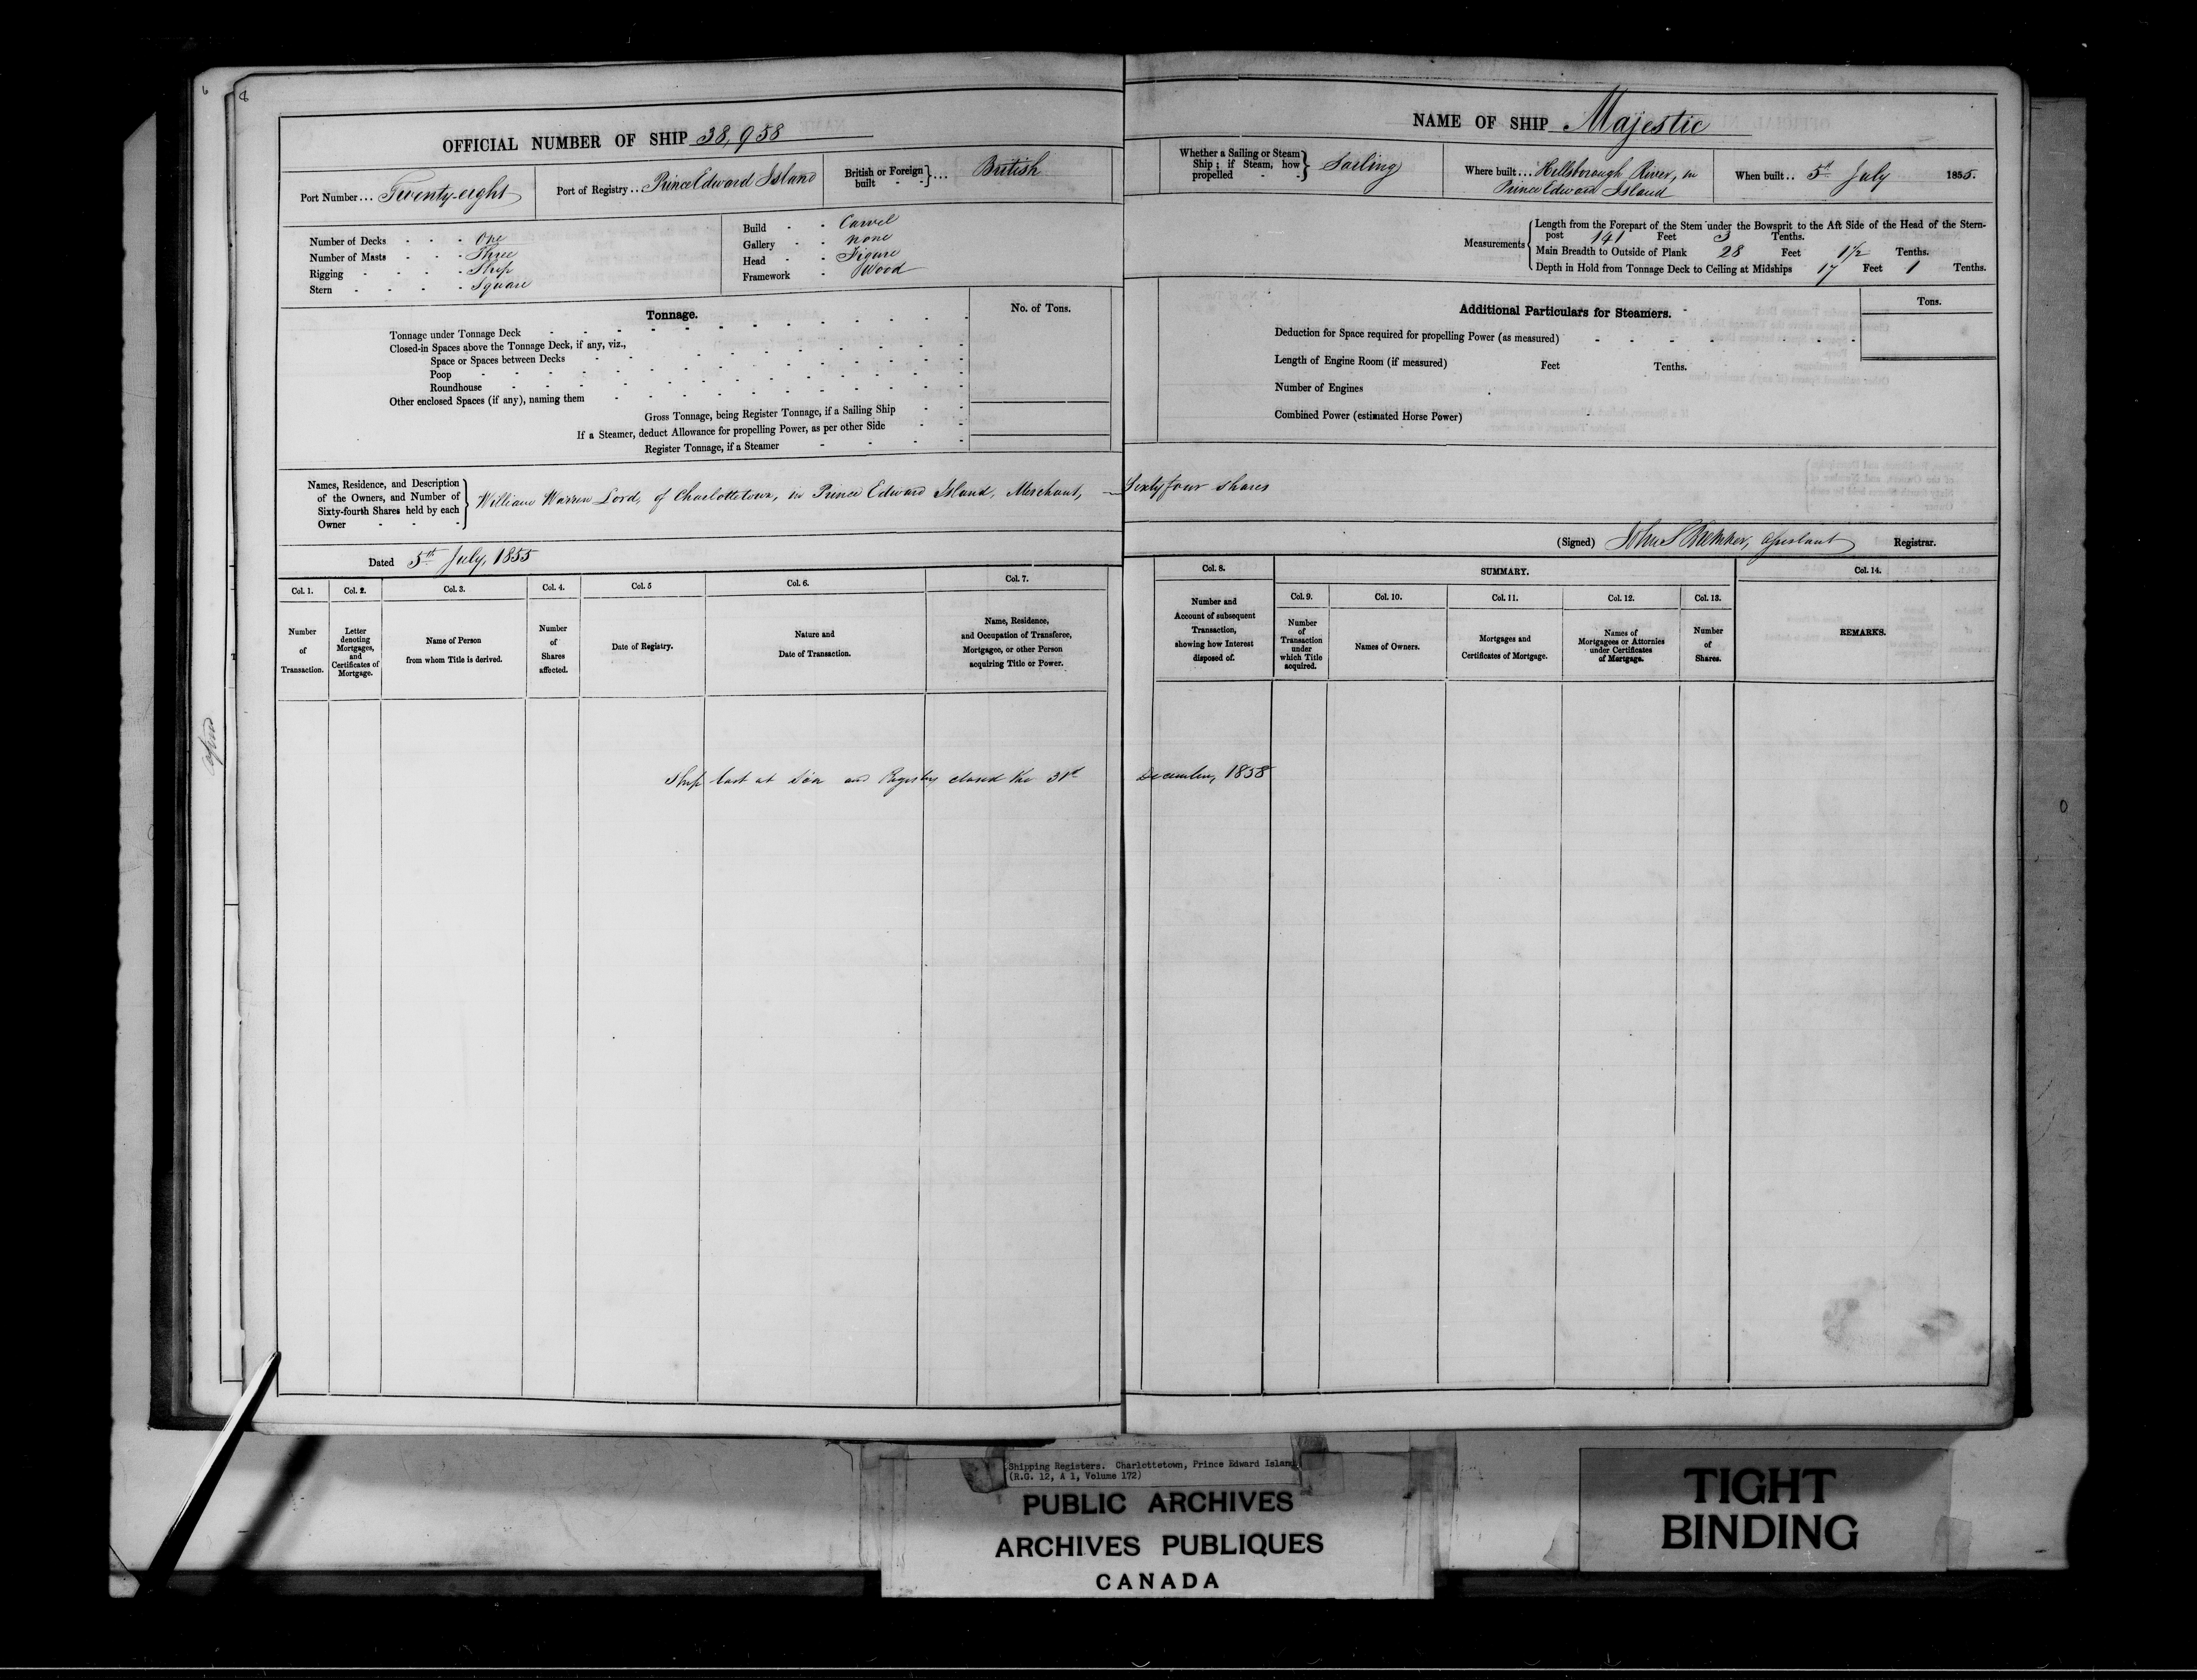 6
8
OFFICIAL NUMBER OF SHIP 38,958
Port Number... Twenty-eight
Port of Registry... Prince Edward Island
British or Foreign built - - } ... British
Number of Decks - - - One
Number of Masts - - - Three
Rigging - - - - Ship
Stern - - - - Square
Build - - Carvel
Gallery - - none
Head - - Figure
Framework - Wood
Tonnage.
No. of Tons.
Tonnage under Tonnage Deck
Closed-in Spaces above the Tonnage Deck, if any, viz.,
Space or Spaces between Decks
Poop
Roundhouse
Other enclosed Spaces (if any), naming them
Gross Tonnage, being Register Tonnage, if a Sailing Ship
If a Steamer, deduct Allowance for propelling Power, as per other Side
Register Tonnage, if a Steamer
NAME OF SHIP Majestic
Whether a Sailing or Steam Ship; if Steam, how propelled - - } Sailing
Where built... Hillsborough River, in
Prince Edward Island
When built.. 5th July 1855.
Measurements
Length from the Forepart of the Stem under the Bowsprit to the Aft Side of the Head of the Stern-
post 141 Feet 3 Tenths.
Main Breadth to Outside of Plank 28 Feet 1½ Tenths.
Depth in Hold from Tonnage Deck to Ceiling at Midships 17 Feet 1 Tenths.
Additional Particulars for Steamers.
Tons.
Deduction for Space required for propelling Power (as measured)
Length of Engine Room (if measured) Feet Tenths.
Number of Engines
Combined Power (estimated Horse Power)
Names, Residence, and Description
of the Owners, and Number of
Sixty-fourth Shares held by each
Owner
William Warren Lord, of Charlottetown, in Prince Edward Island, Merchant, — Sixty four shares
Dated 5th July, 1855
(Signed) John S Assistant Registrar.
Col. 1.
Number
of
Transaction.
Col. 2.
Letter
denoting
Mortgages,
and
Certificates of
Mortgage.
Col. 3.
Name of Person
from whom Title is derived.
Col. 4.
Number
of
Shares
affected.
Col. 5
Date of Registry.
Col. 6.
Nature and
Date of Transaction.
Col. 7.
Name, Residence,
and Occupation of Transferee,
Mortgagee, or other Person
acquiring Title or Power.
Col. 8.
Number and
Account of subsequent
Transaction,
showing how Interest
disposed of.
SUMMARY.
Col. 9.
Number
of
Transaction
under
which Title
acquired.
Col. 10.
Names of Owners.
Col. 11.
Mortgages and
Certificates of Mortgage.
Col. 12.
Names of
Mortgagees or Attornies
under Certificates
of Mortgage.
Col. 13.
Number
of
Shares.
Col. 14.
REMARKS.
Ship lost at Sea and Registry closed the 31st December, 1858
Shipping Registers. Charlottetown, Prince Edward Island
(R.G. 12, A 1, Volume 172)
PUBLIC ARCHIVES
ARCHIVES PUBLIQUES
CANADA
TIGHT
BINDING